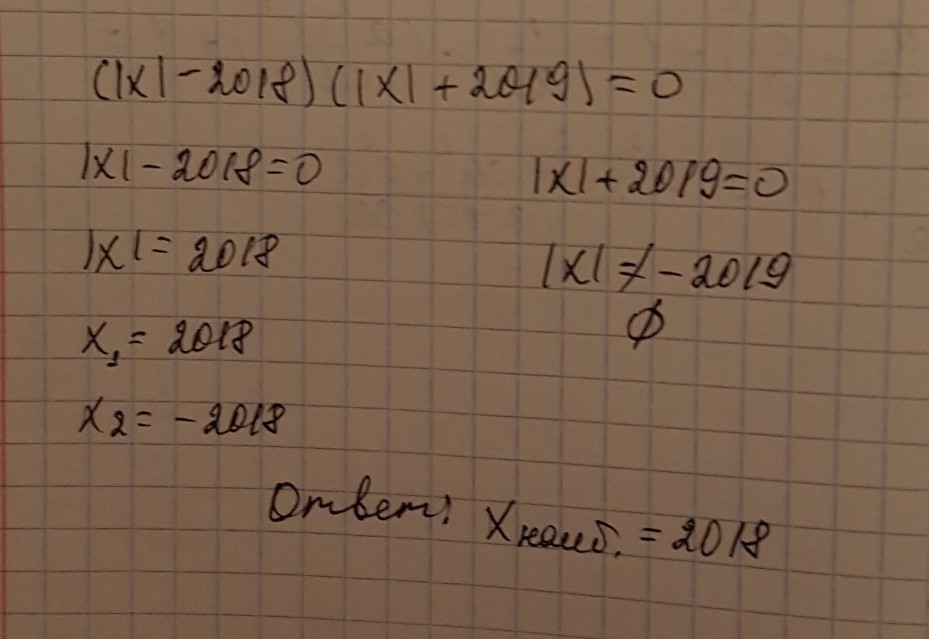 (|x| - 2018)(|x| + 2019) = 0
|x| - 2018 = 0 |x| + 2019 = 0
|x| = 2018 |x| ≠ -2019
x₁ = 2018 ∅
x₂ = -2018
Ответ: x наиб. = 2018